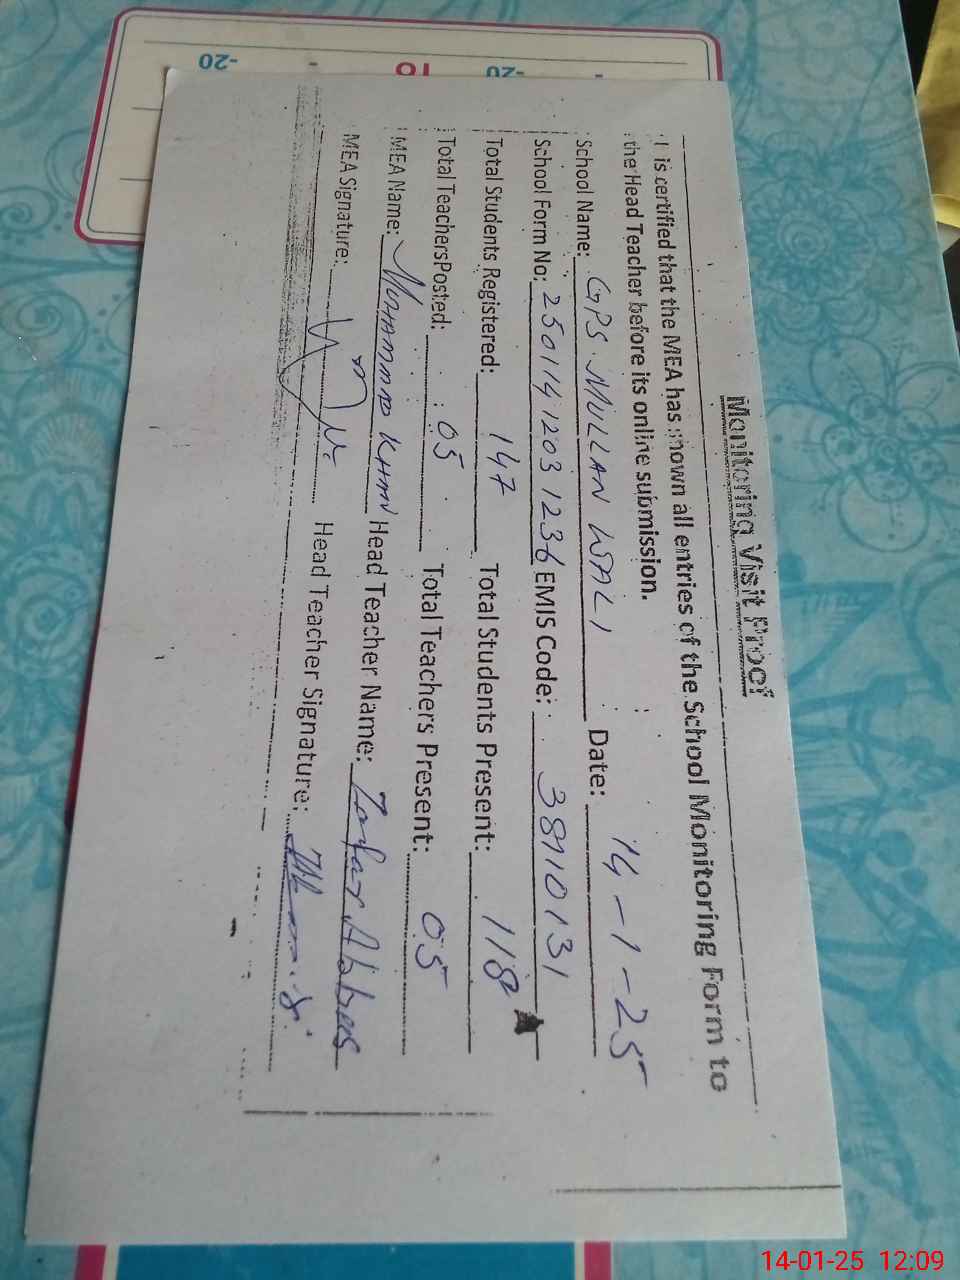 Monitoring Visit Proof
I is certified that the MEA has shown all entries of the School Monitoring Form to
the Head Teacher before its online submission.
School Name: GPS MULLAN WALI Date: 14-1-25
School Form No: 250114 1203 1236 EMIS Code: 38910131
Total Students Registered: 147 Total Students Present: 118
Total TeachersPosted: 05 Total Teachers Present: 05
MEA Name: MUHAMMAD KHAN Head Teacher Name: Zafar Abbas
MEA Signature: Head Teacher Signature:
-20
-20
14-01-25 12:09